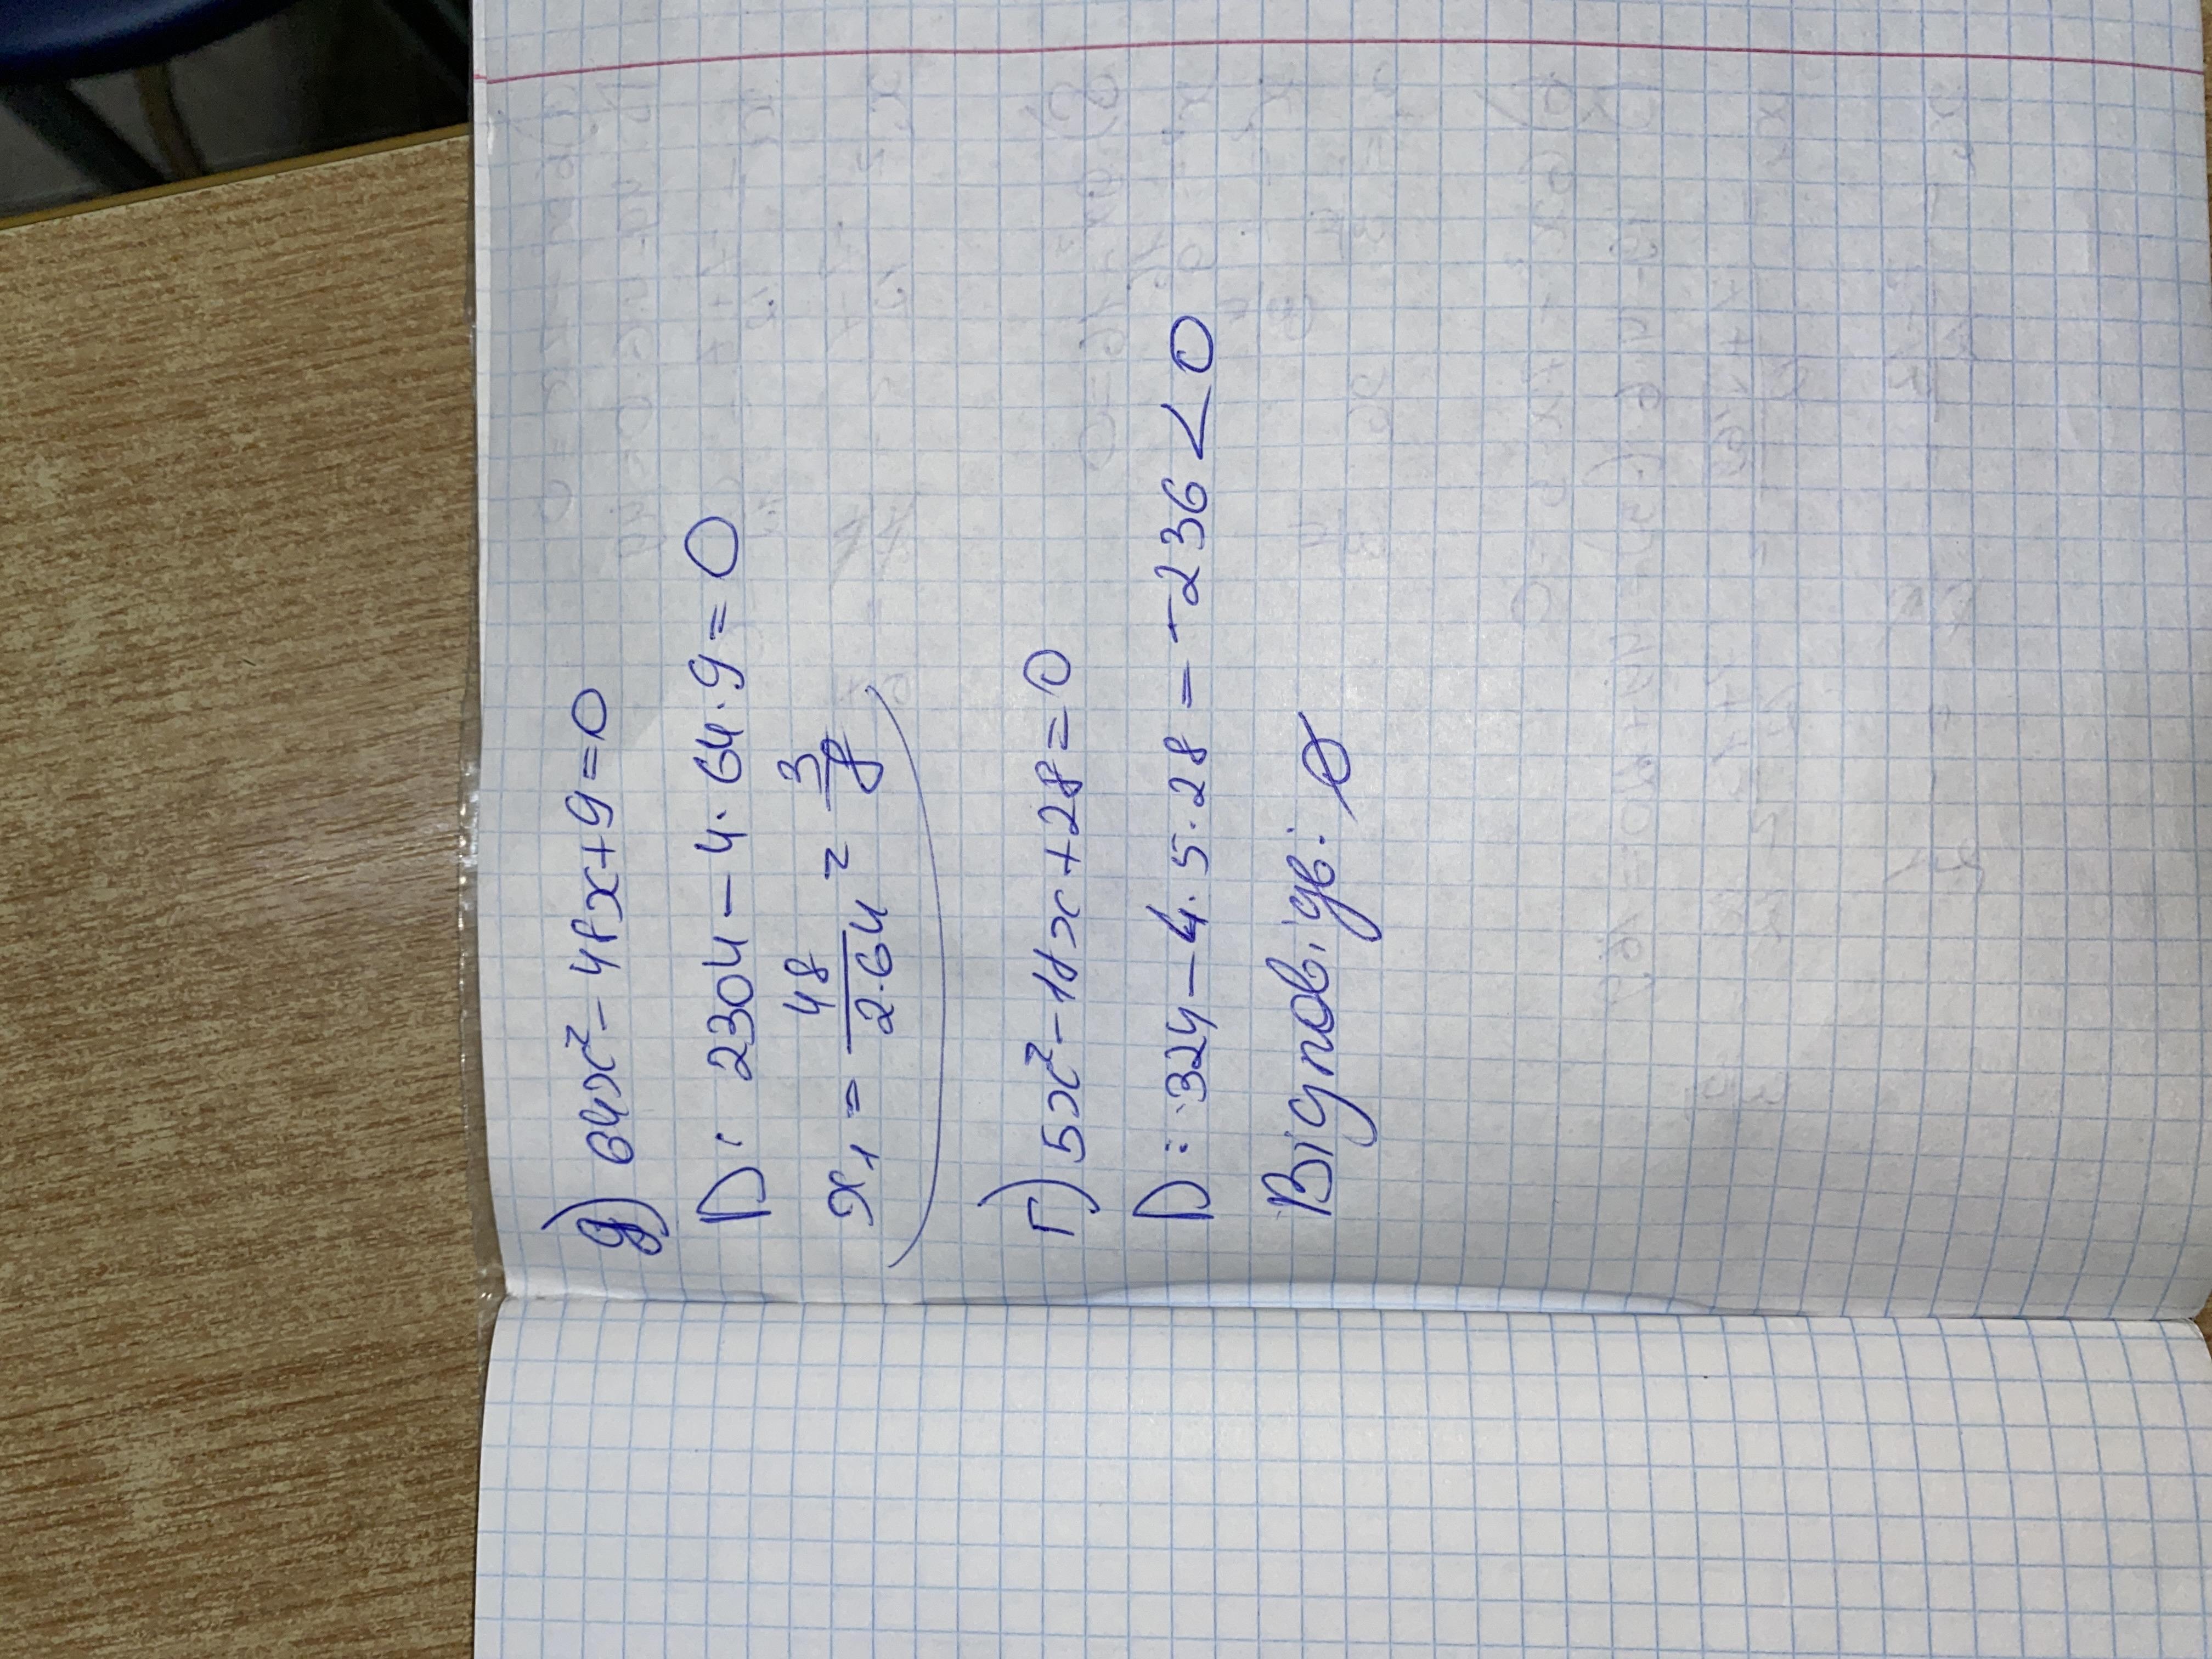 д) 64x² - 48x + 9 = 0
D: 2304 - 4 · 64 · 9 = 0
x₁ = 48/(2·64) = 3/8
г) 5x² - 18x + 28 = 0
D: 324 - 4 · 5 · 28 = -236 < 0
Відповідь: ∅